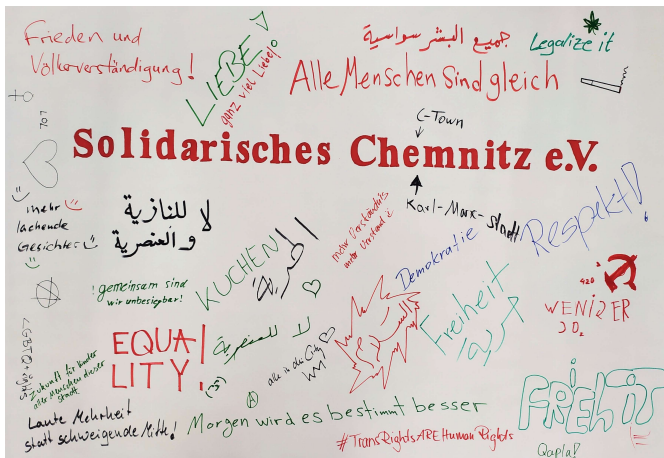 Frieden und
Völkerverständigung!
LIEBE
ganz viel Liebe!
جميع البشر سواسية
Alle Menschen Sind gleich
Legalize it
C-Town
Solidarisches Chemnitz e.V.
Karl-Marx-Stadt
Respekt!
mehr
lachende
Gesichter
لا للنازية
و العنصرية
KUCHEN
الحرية
mehr Verständnis
mehr Verstand
Demokratie
! gemeinsam sind
wir unbesiegbar!
Freiheit
حرية
420
WENIGER
CO₂
EQUA
LITY.
لا للعنصرية
السلام
alle in die City
LGBTQ
Zukunft für Kinder
aller Menschen dieser
Stadt
Laute Mehrheit
statt schweigende Mitte!
A
Morgen wird es bestimmt besser
#TransRightsAREHumanRights
Qapla!